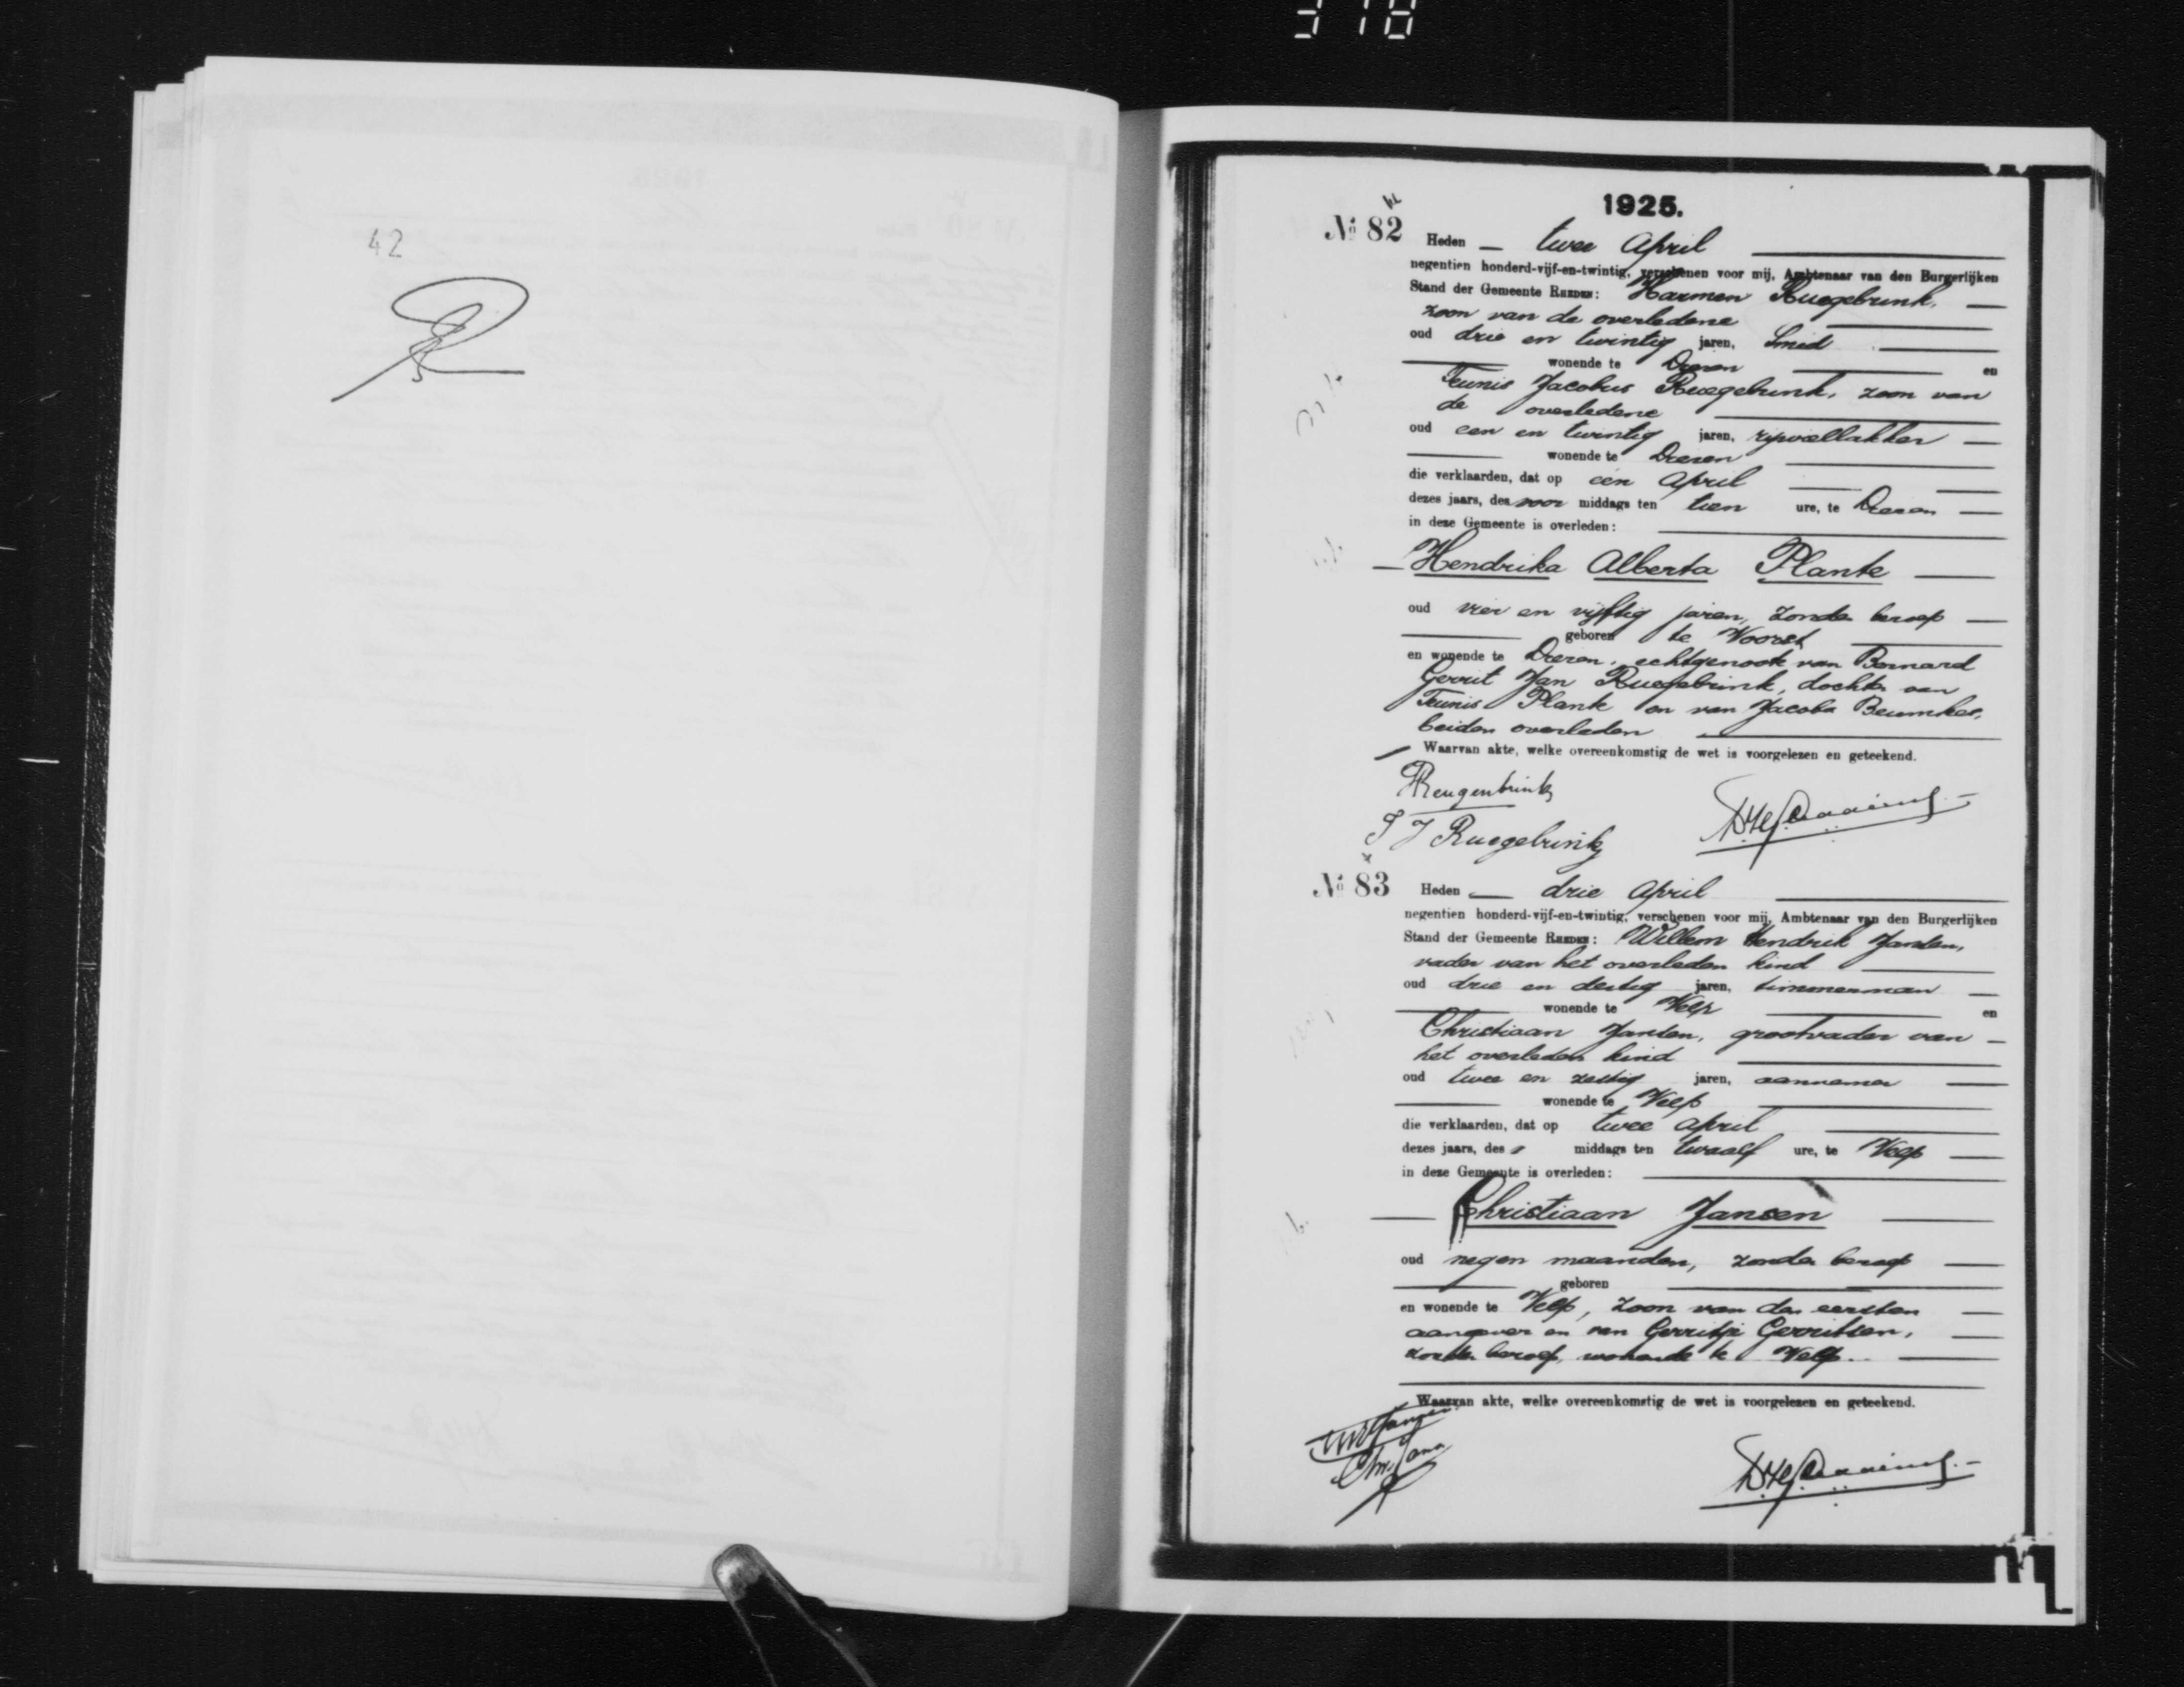 318
42
1925.
№ 82
Heden — twee April
negentien honderd-vijf-en-twintig, verschenen voor mij, Ambtenaar van den Burgerlijken
Stand der Gemeente Rheden: Harmen Ruegebrink,
zoon van de overledene
oud drie en twintig jaren, Smid
wonende te Dieren en
Teunis Jacobus Ruegebrink, zoon van
de overledene
oud een en twintig jaren, rijwiellakker
wonende te Dieren
die verklaarden, dat op één April
dezes jaars, des voor middags ten tien ure, te Dieren
in deze Gemeente is overleden:
Hendrika Alberta Plante
oud vier en vijftig jaren, zonder beroep
geboren te Voorst
en wonende te Dieren, echtgenoote van Bernard
Gerrit Jan Ruegebrink, dochter van
Teunis Plank en van Jacoba Beumkes,
beiden overleden
Waarvan akte, welke overeenkomstig de wet is voorgelezen en geteekend.
HReugenbrink
T J Ruegebrink
№ 83
Heden — drie April
negentien honderd-vijf-en-twintig, verschenen voor mij, Ambtenaar van den Burgerlijken
Stand der Gemeente Rheden: Willem Hendrik Jansen,
vader van het overleden kind
oud drie en dertig jaren, timmerman
wonende te Velp en
Christiaan Jansen, grootvader van
het overleden kind
oud twee en zestig jaren, aannemer
wonende te Velp
die verklaarden, dat op twee April
dezes jaars, des s middags ten twaalf ure, te Velp
in deze Gemeente is overleden:
Christiaan Jansen
oud negen maanden, zonder beroep
geboren
en wonende te Velp, zoon van den eersten
aangever en van Gerritje Gerritsen,
zonder beroep, wonende te Velp.
Waarvan akte, welke overeenkomstig de wet is voorgelezen en geteekend.
WHJansen
Chr. Jansen